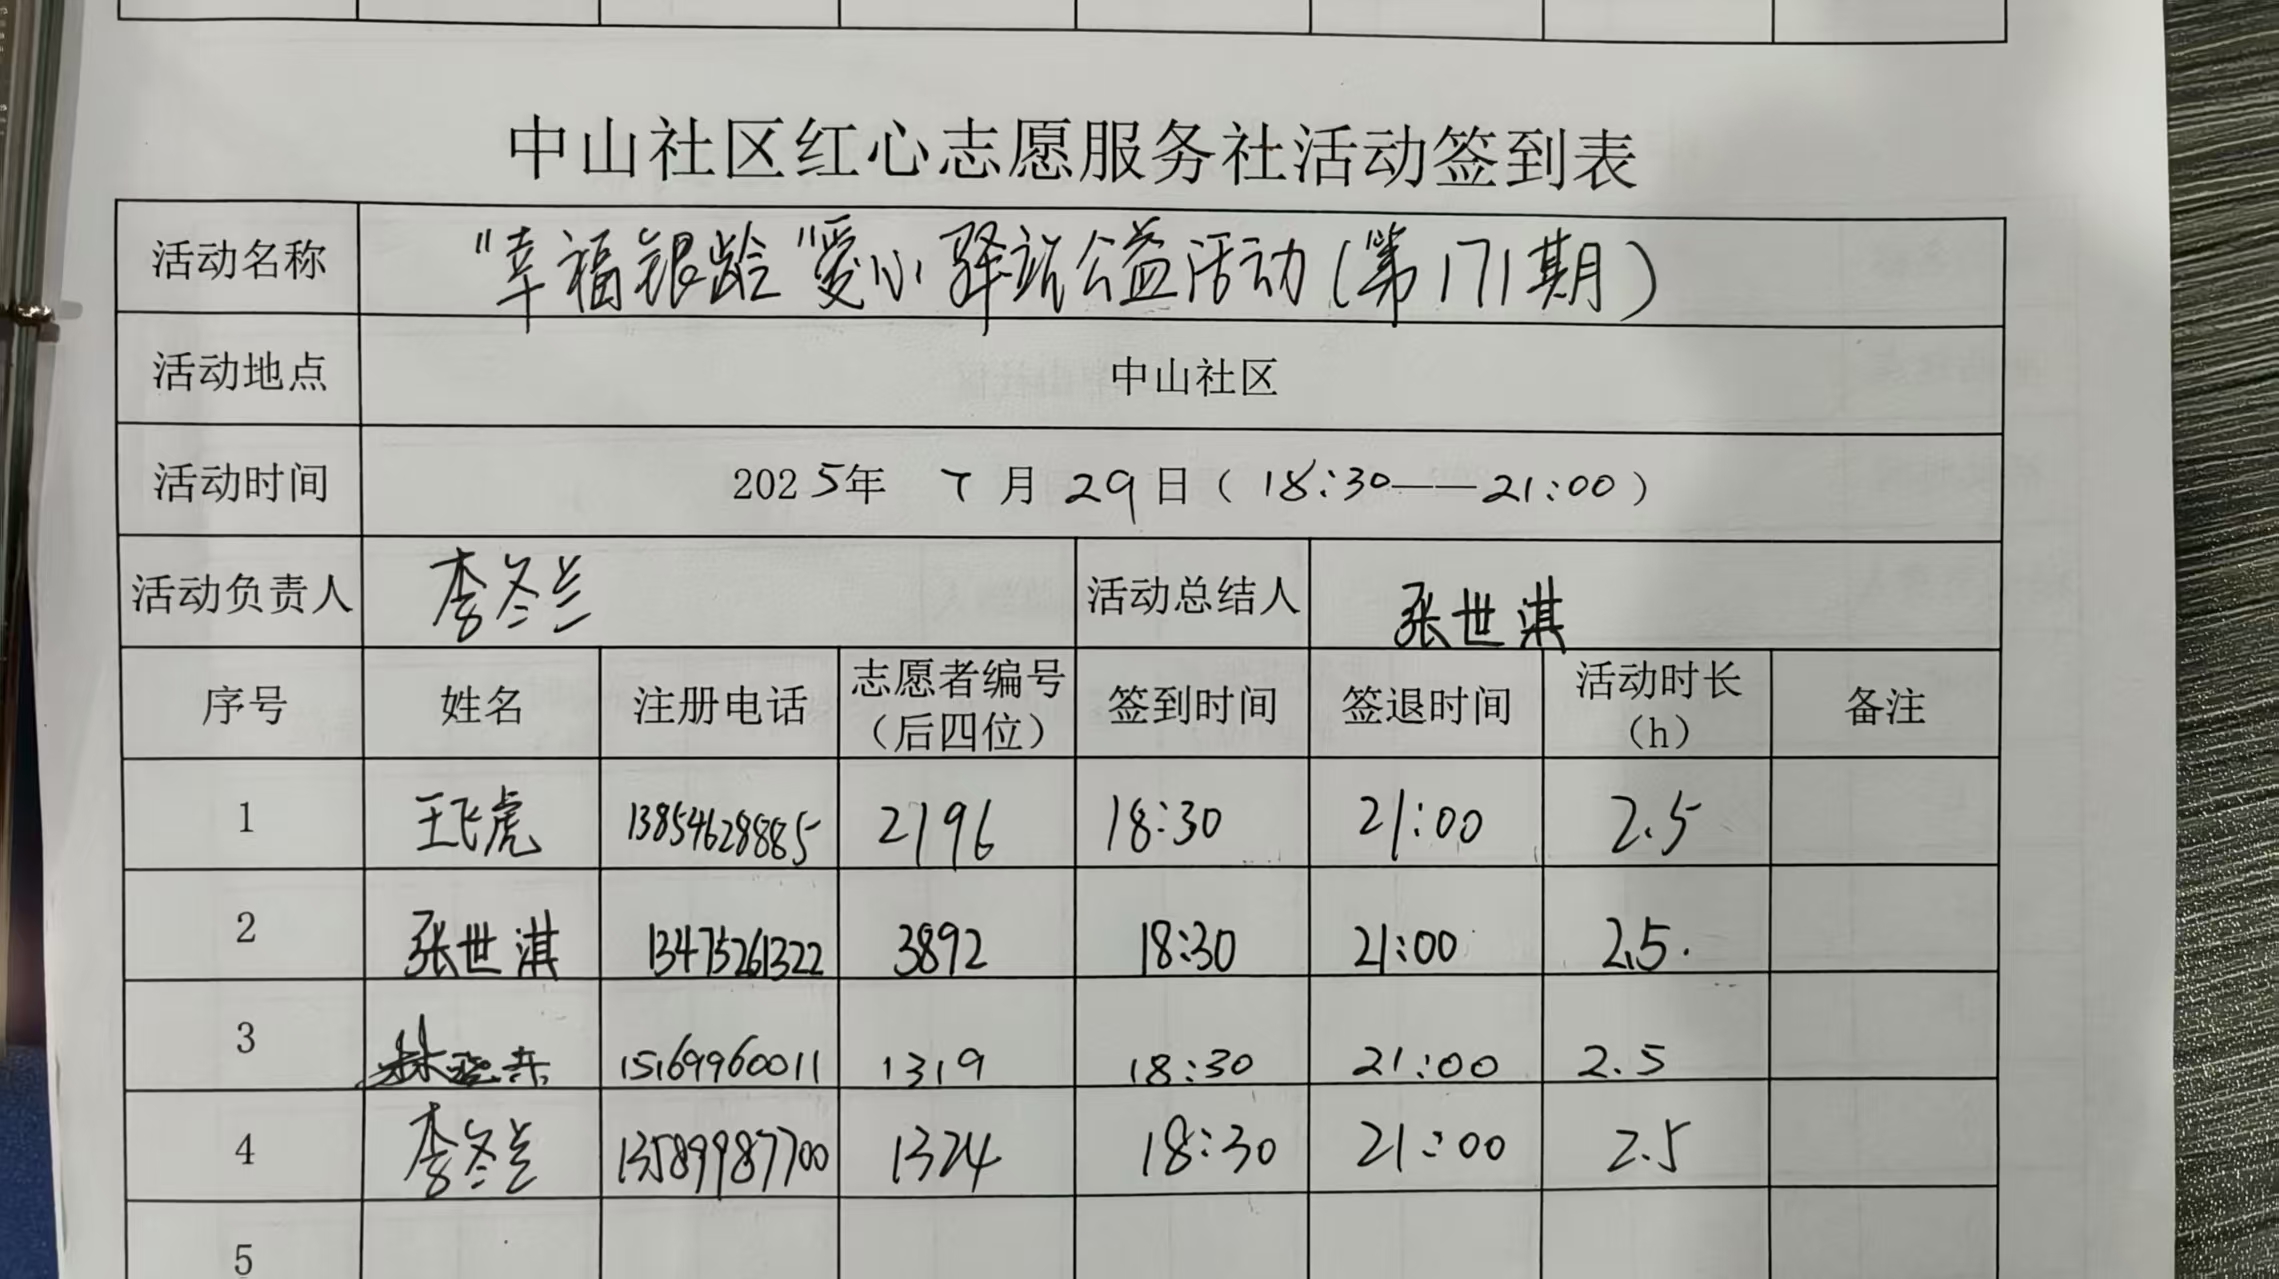 中山社区红心志愿服务社活动签到表
活动名称 "幸福银龄"爱心驿站公益活动(第171期)
活动地点 中山社区
活动时间 2025年 7月29日(18:30——21:00)
活动负责人 李冬兰 活动总结人 张世淇
序号 姓名 注册电话 志愿者编号(后四位) 签到时间 签退时间 活动时长(h) 备注
1 王飞虎 13854628885 2196 18:30 21:00 2.5
2 张世淇 13475261322 3892 18:30 21:00 2.5.
3 15169960011 1319 18:30 21:00 2.5
4 李冬兰 13589987700 1324 18:30 21:00 2.5
5